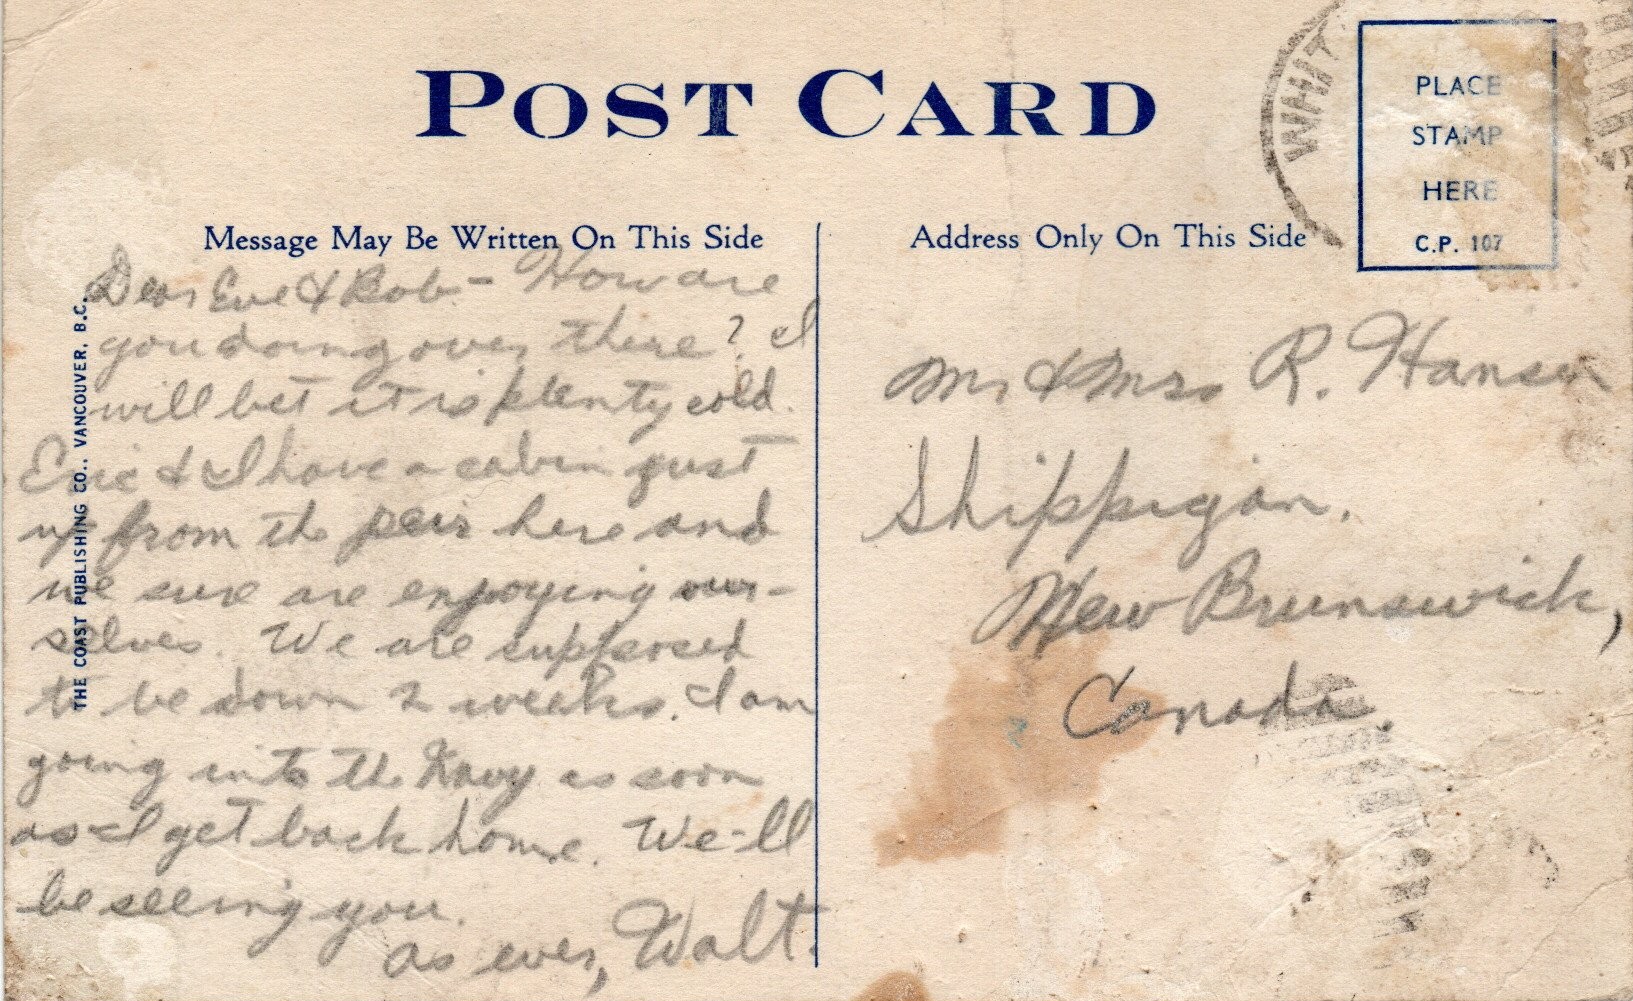 POST CARD
WHIT
PLACE
STAMP
HERE
C.P. 107
Message May Be Written On This Side
Address Only On This Side
THE COAST PUBLISHING CO., VANCOUVER, B.C.
Dear Eve & Bob - How are
you doing over there? I
will bet it is plenty cold.
Eric & I have a cabin just
up from the peir here and
we sure are enjoying our-
selves. We are supposed
to be down 2 weeks. I am
going into the Navy as soon
as I get back home. We-ll
be seeing you.
as ever, Walt.
Mr & Mrs R. Hansen
Shippigan.
New Brunswick,
Canada.